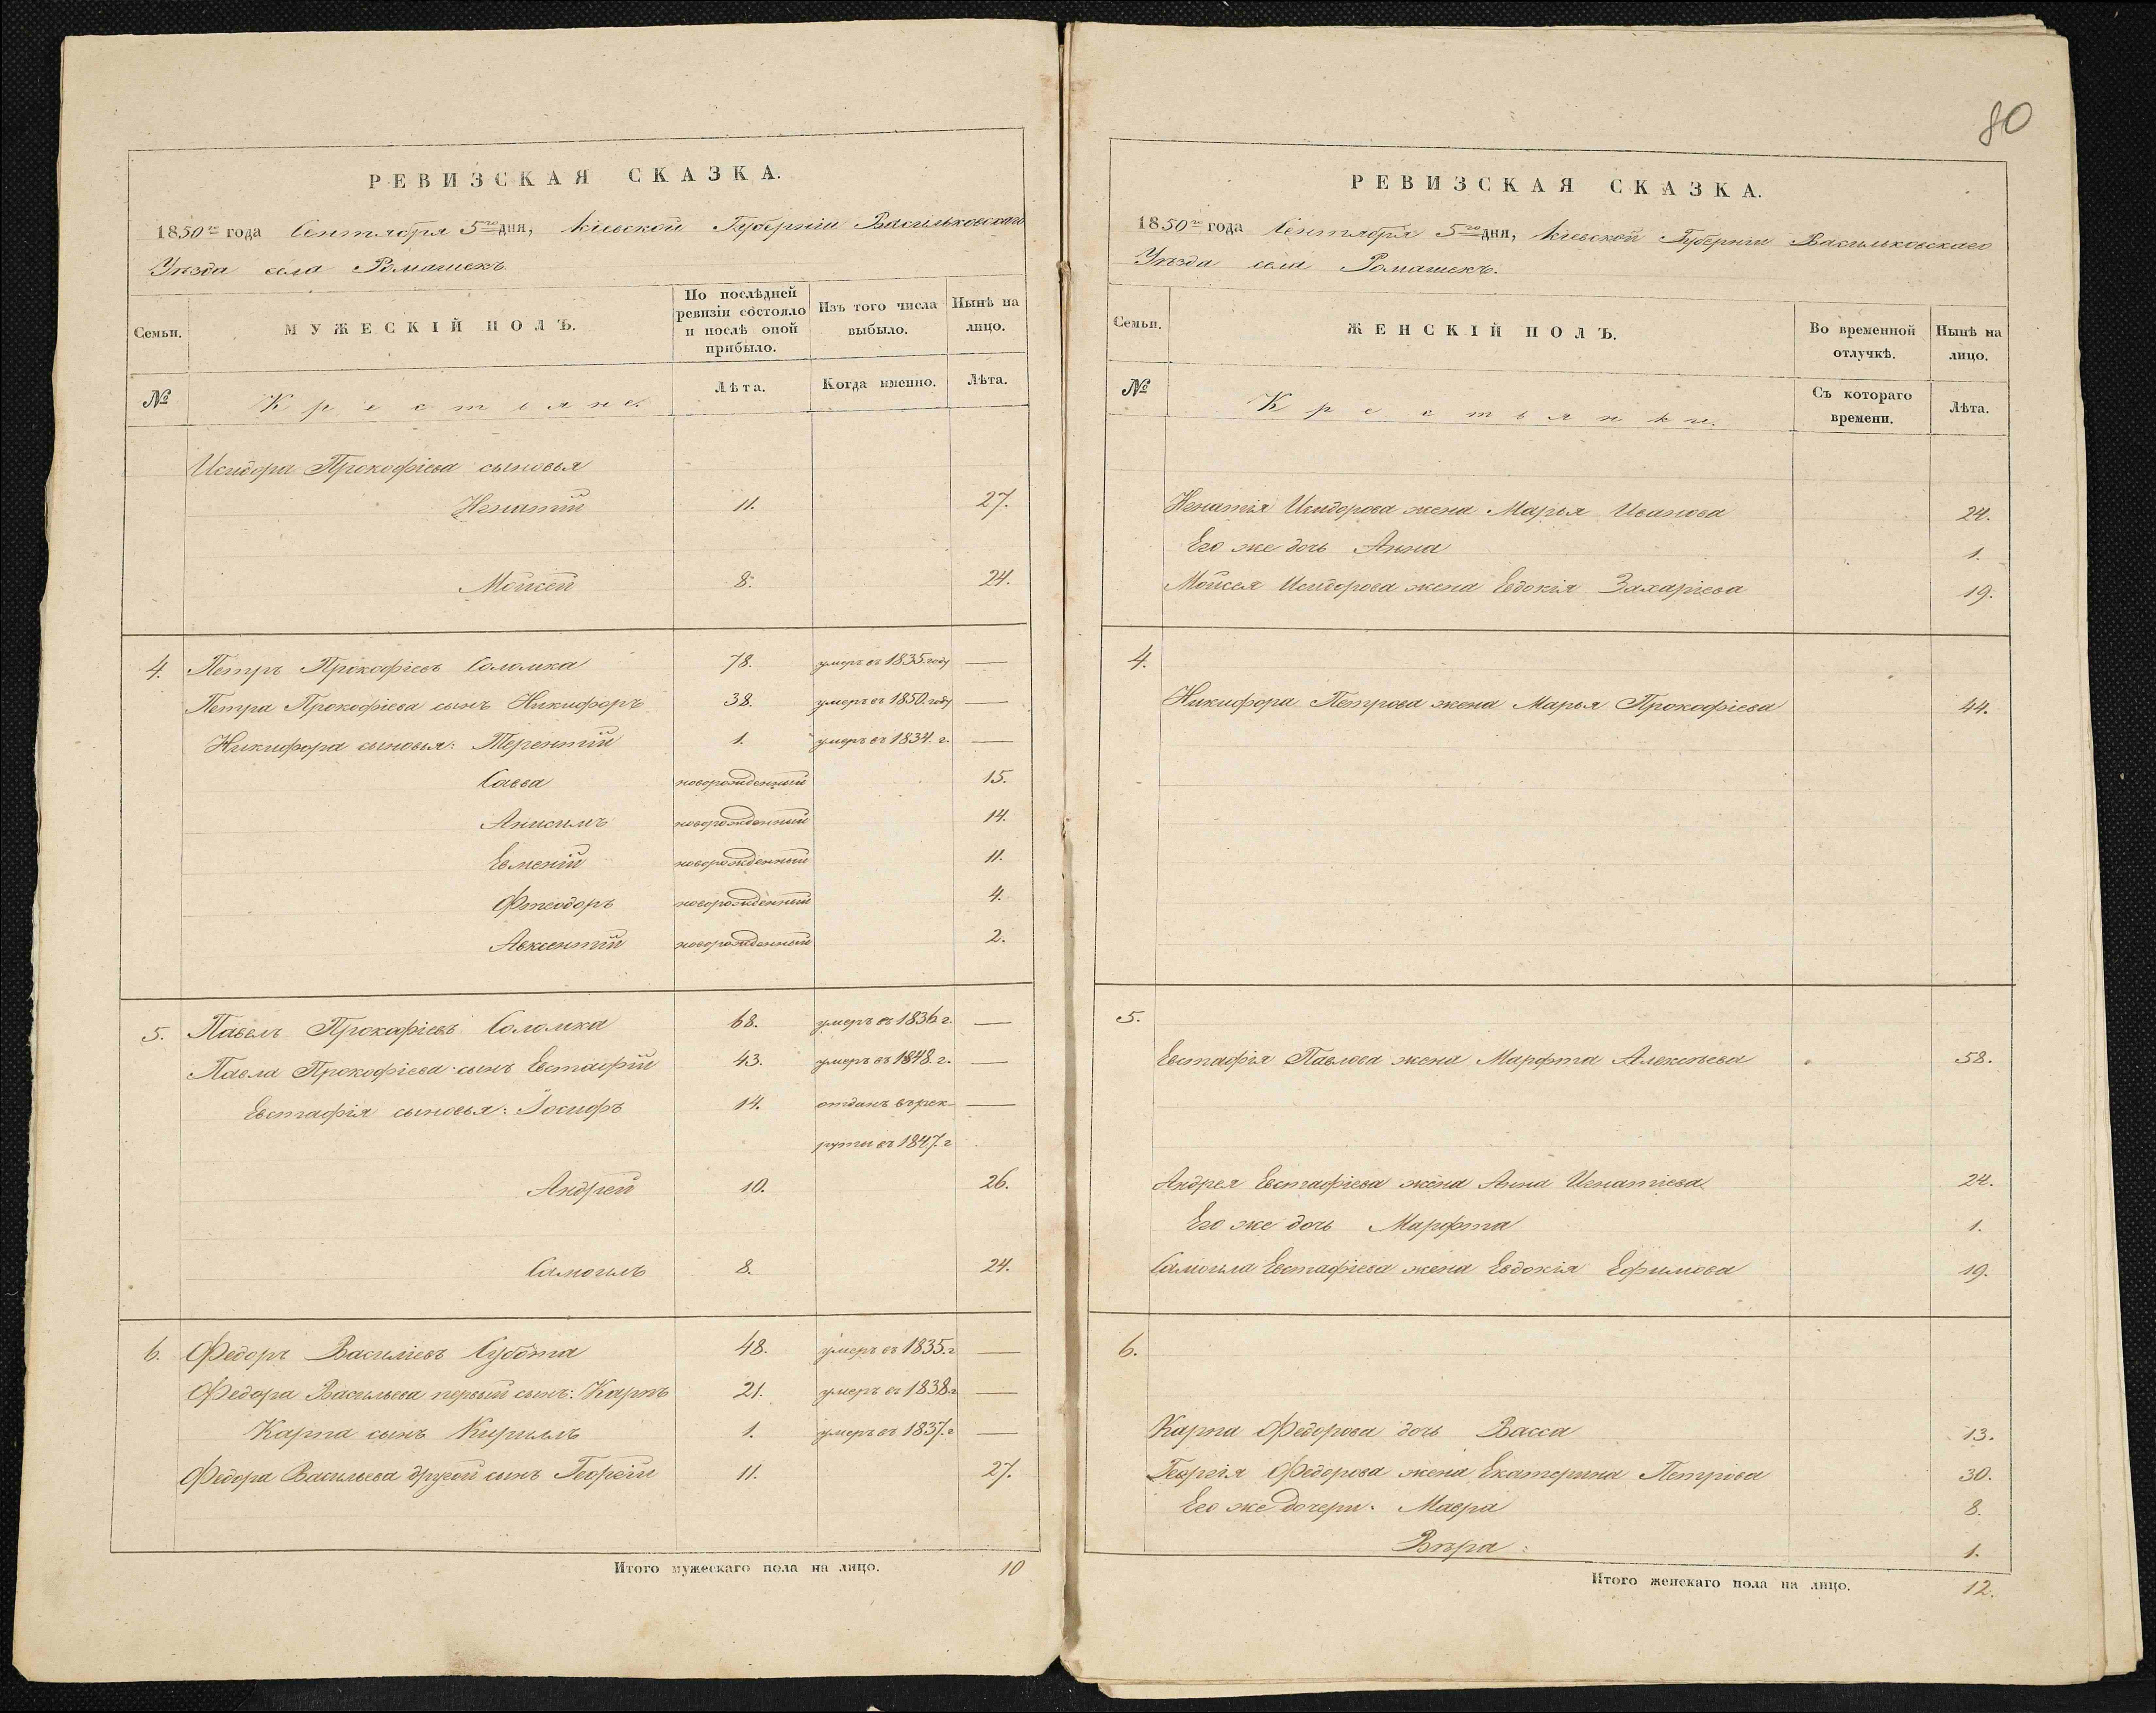 80
РЕВИЗСКАЯ СКАЗКА.
1850го года Сентября 5го дня, Кіевской Губерніи Васильковскаго
Уѣзда села Ромашекъ.
Семьи.
МУЖЕСКІЙ ПОЛЪ.
По послѣдней ревизіи состояло и послѣ оной прибыло.
Изъ того числа выбыло.
Нынѣ на лицо.
№
Крестьяне.
Лѣта.
Когда именно.
Лѣта.
Исидора Прокофіева сыновья
Игнатій 11. 27.
Мойсей 8. 24.
4. Петръ Прокофіевъ Соломка 78. умеръ въ 1835 году —
Петра Прокофіева сынъ Никифоръ 38. умеръ въ 1850 году —
Никифора сыновья: Терентій 1. умеръ въ 1834. г. —
Савва новорожденный 15.
Анисимъ новорожденный 14.
Евменій новорожденный 11.
Фтеодоръ новорожденный 4.
Авксентій новорожденный 2.
5. Павелъ Прокофіевъ Соломка 68. умеръ въ 1836 г. —
Павла Прокофіева сынъ Евстафій 43. умеръ въ 1848 г. —
Евстафія сыновья: Іосифъ 14. отданъ въ рек- —
руты въ 1847. г
Андрей 10. 26.
Самоилъ 8. 24.
6. Федоръ Василіевъ Субота 48. умеръ въ 1835. г —
Федора Васильева первый сынъ: Карпъ 21. умеръ въ 1838 г —
Карпа сынъ Кириллъ 1. умеръ въ 1837. г —
Федора Васильева другой сынъ Георгій 11. 27.
Итого мужескаго пола на лицо. 10
РЕВИЗСКАЯ СКАЗКА.
1850го года Сентября 5го дня, Кіевской Губерніи Васильковскаго
Уѣзда села Ромашекъ.
Семьи.
ЖЕНСКІЙ ПОЛЪ.
Во временной отлучкѣ.
Нынѣ на лицо.
№
Крестьянки.
Съ котораго времени.
Лѣта.
Игнатія Исидорова жена Марья Иванова 24.
Его же дочь Анна 1.
Мойсея Исидорова жена Евдокія Захаріева 19.
4.
Никифора Петрова жена Марья Прокофіева 44.
5.
Евстафія Павлова жена Марфта Алексѣева 58.
Андрея Евстафіева жена Анна Игнатіева 24.
Его же дочь Марфта 1.
Самоила Евстафіева жена Евдокія Ефимова 19.
6.
Карпа Федорова дочь Васса 13.
Георгія Федорова жена Екатерина Петрова 30.
Его же дочери: Мавра 8.
Вѣра: 1.
Итого женскаго пола на лицо. 12.